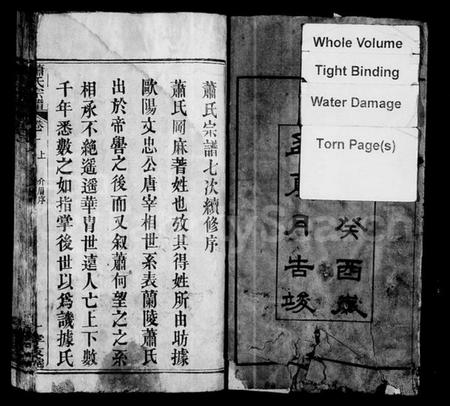 Whole Volume
Tight Binding
Water Damage
Torn Page(s)
癸酉嶽
月告竣
蕭氏宗譜七次續修序
蕭氏岡麻著姓也攷其得姓所由昉據
歐陽文忠公唐宰相世系表蘭陵蕭氏
出於帝嚳之後而又叙蕭何望之之系
相承不絶遥遥華胄世遠人亡上下數
千年悉數之如指掌後世以爲譏據氏
蕭氏宗譜
卷一上